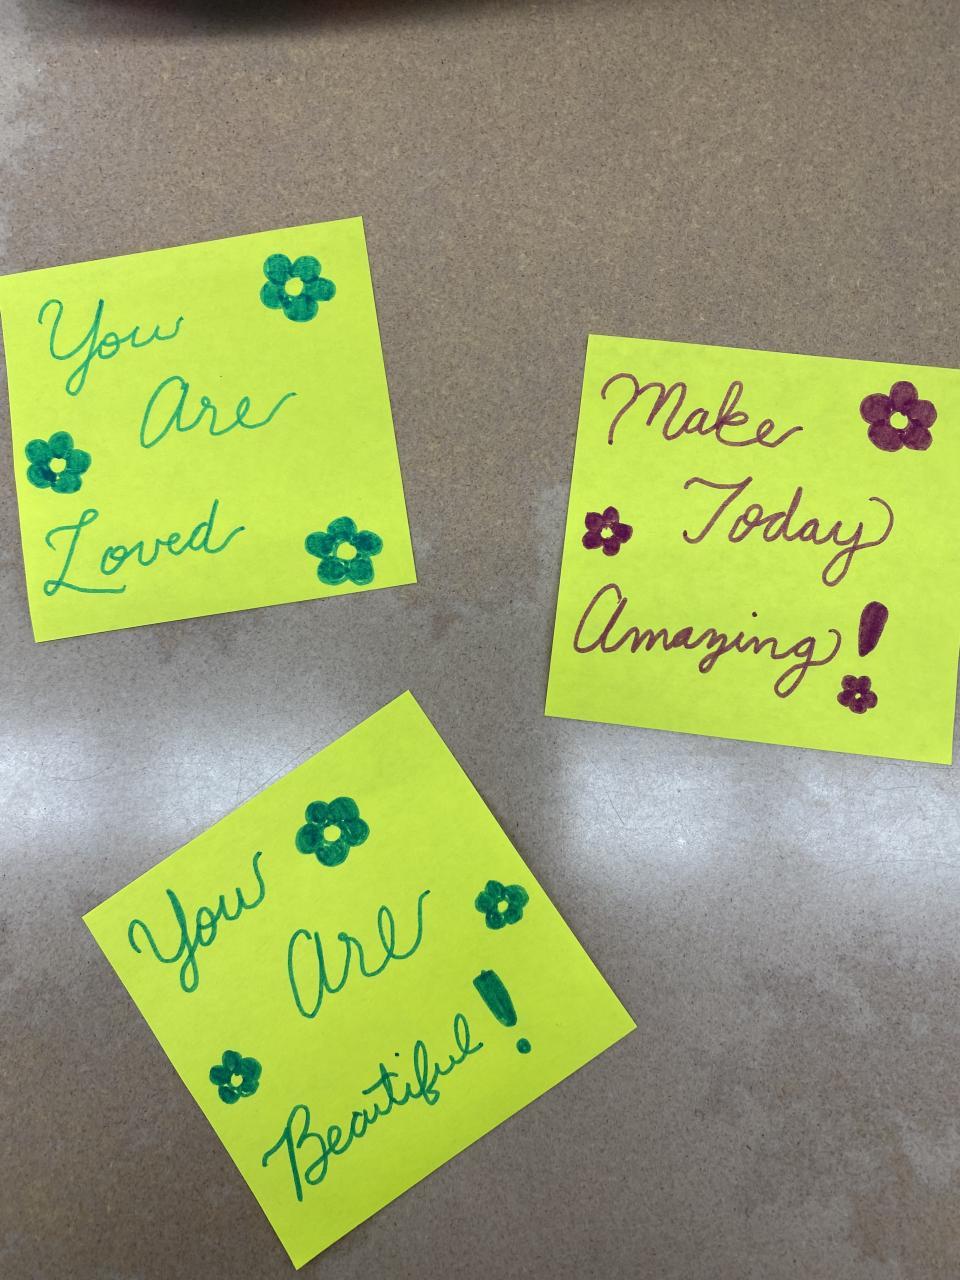 You
Are
Loved
Make
Today
Amazing!
You
Are
Beautiful!